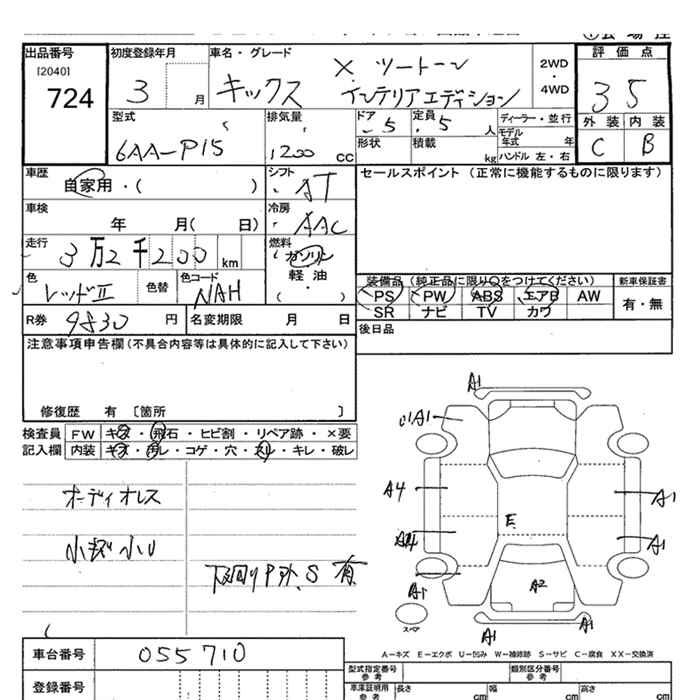 出品番号
[2040]
724
初度登録年月
3 月
車名・グレード
キックス
X ツートーン
インテリアエディション
2WD
・
4WD
評価点
3 5
外装 内装
C B
型式
6AA-P15
排気量
1200 cc
ドア
5
定員
5 人
形状
積載
kg
ディーラー・並行
モデル年式 年
ハンドル 左・右
車歴
自家用・( )
シフト
AT
セールスポイント(正常に機能するものに限ります)
車検
年 月( 日)
冷房
AAC
走行
3万2千200 km
燃料
ガソリン
軽油
( ・ )
色
レッドII
色替
色コード
NAH
装備品(純正品に限り○をつけてください)
新車保証書
PS PW ABS エアB AW
SR ナビ TV カワ
有・無
R券
9830 円
名変期限 月 日
後日品
注意事項申告欄(不具合内容等は具体的に記入して下さい)
修復歴 有 〔箇所 〕
検査員
記入欄
FW キズ・飛石・ヒビ割・リペア跡・×要
内装 キズ・汚レ・コゲ・穴・スレ・キレ・破レ
オーディオレス
小キズ 小U
下回り P外、S 有
A1
A1
A4
A1
E
A1
A1
A2
A1
A1
スペア
A-キズ E-エクボ U-凹み W-補修跡 S-サビ C-腐食 XX-交換済
車台番号
055710
登録番号
型式指定番号
参考
類別区分番号
参考
車庫証明用
参考
長さ cm
幅 cm
高さ cm